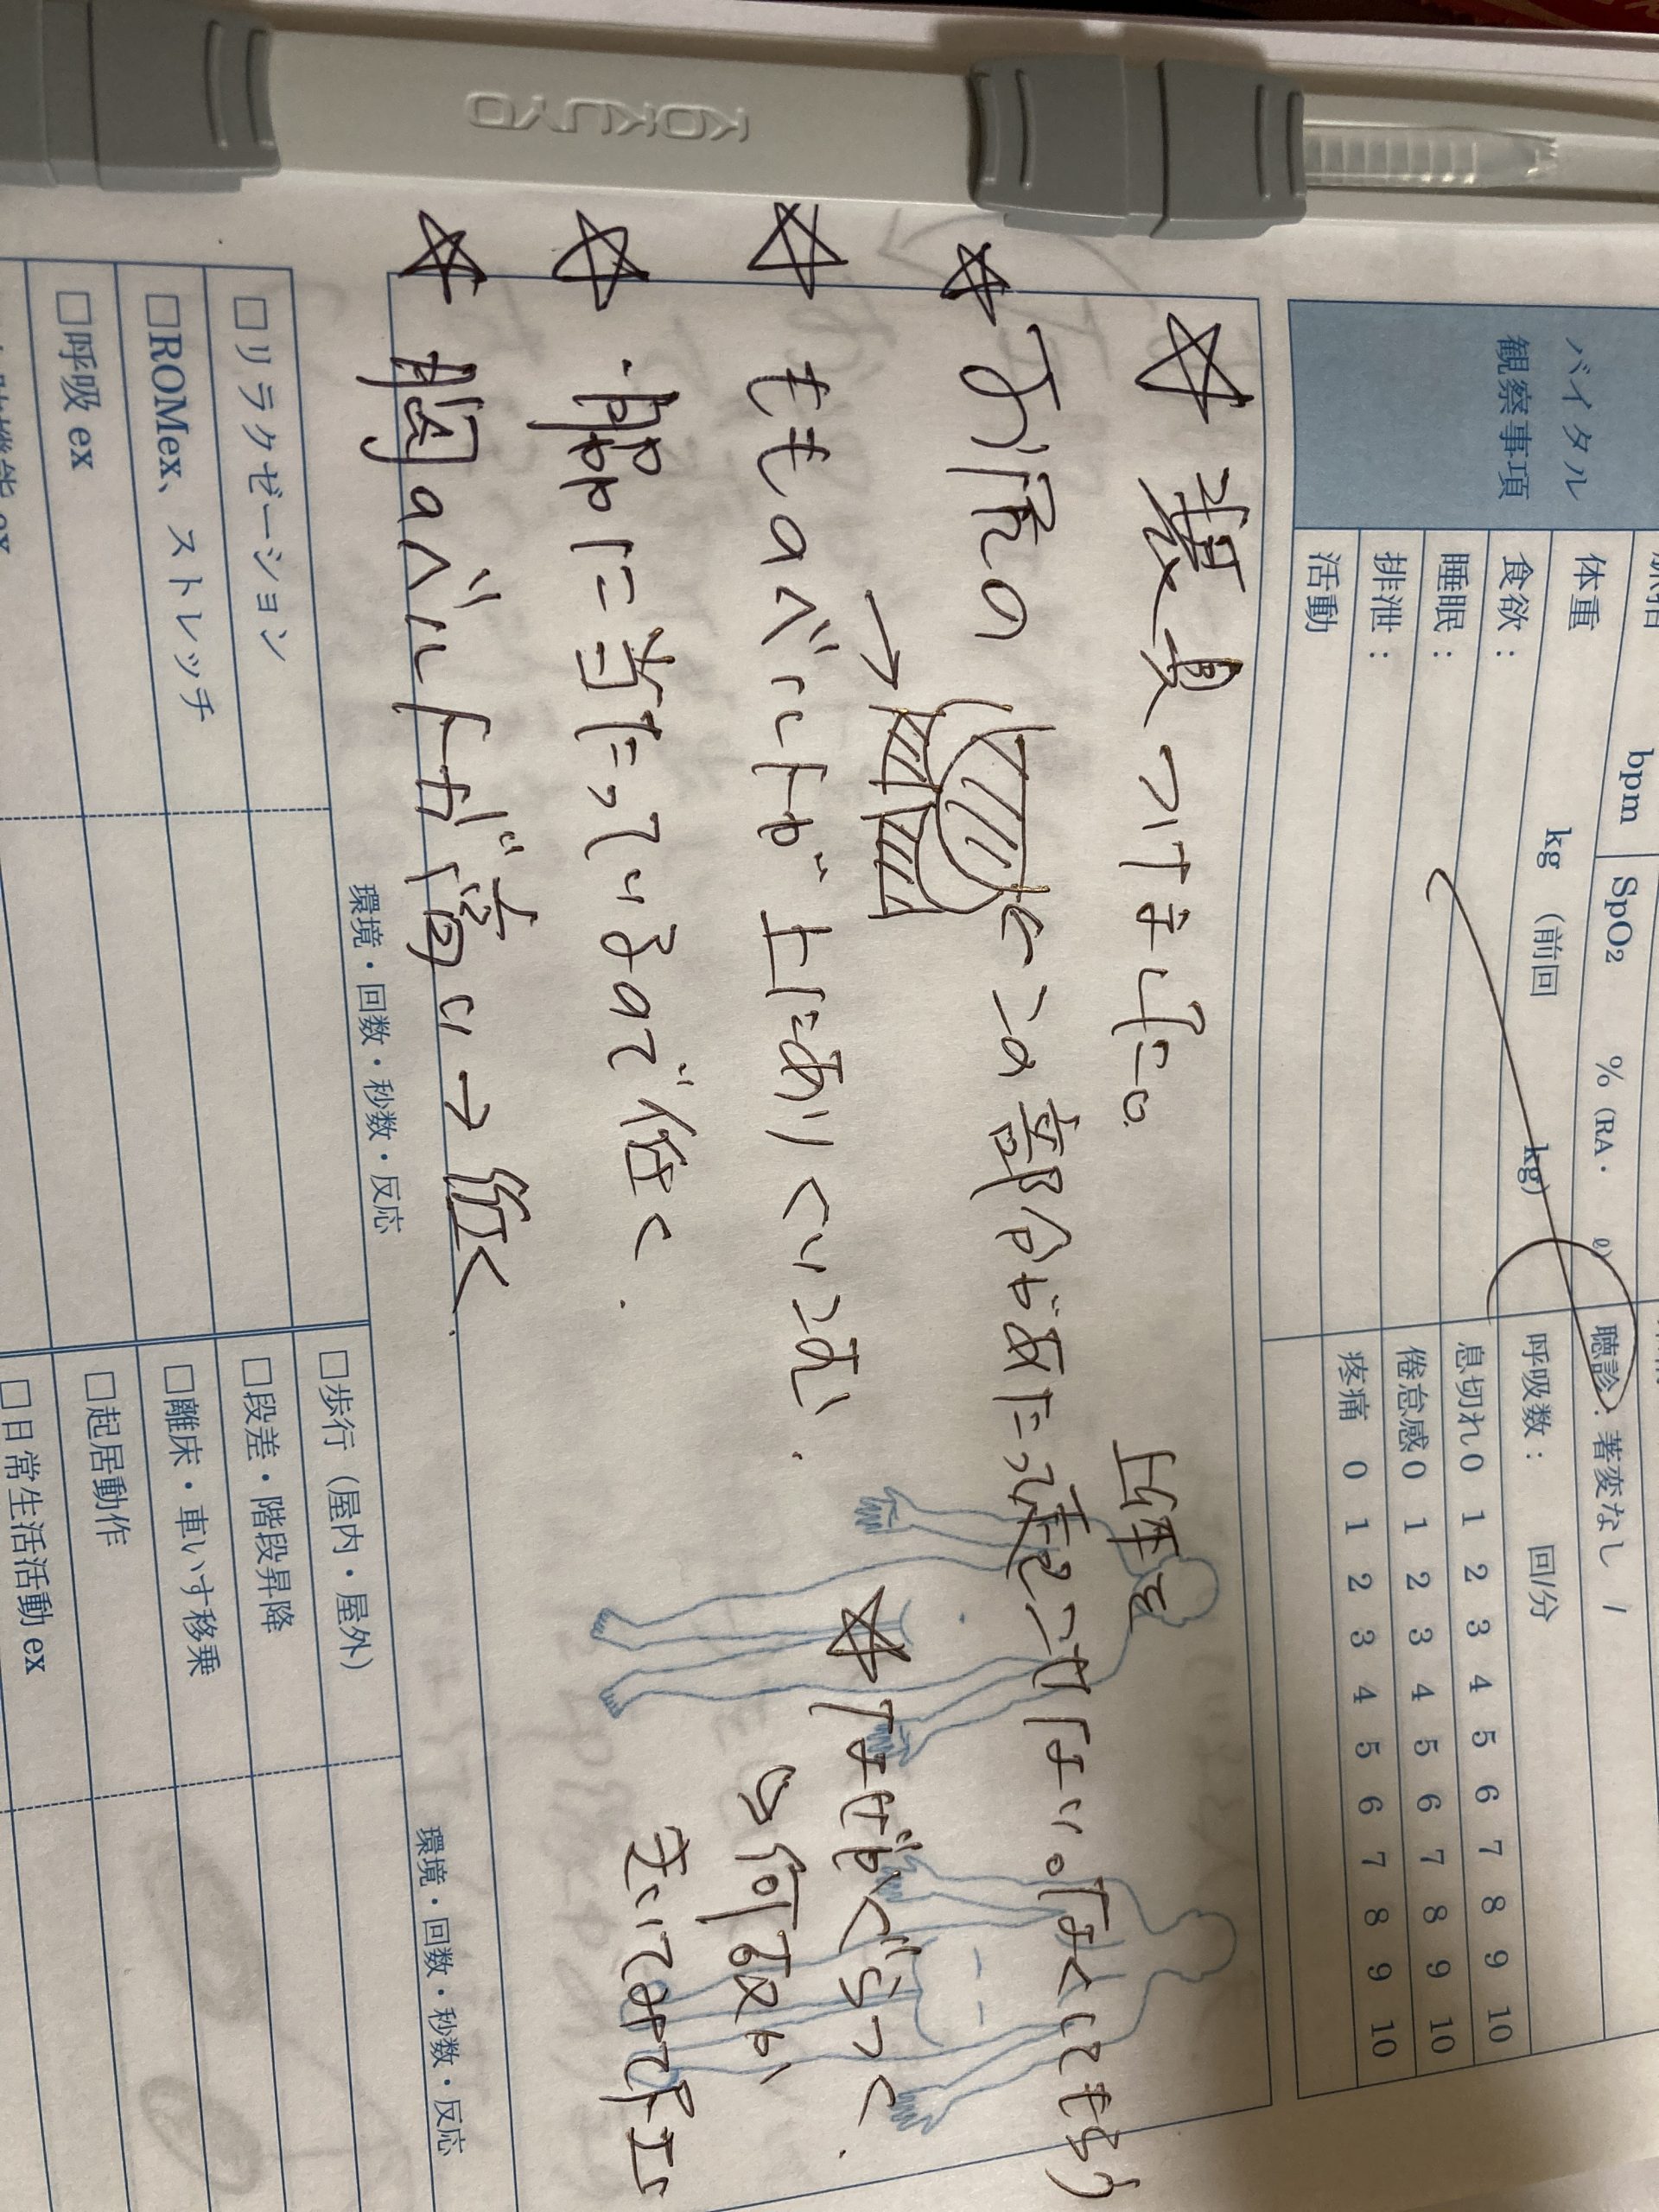 KOKUYO
脈拍 bpm SpO2 % (RA・ ℓ)
聴診：著変なし /
バイタル
観察事項
体重 kg (前回 kg)
呼吸数： 回/分
食欲：
息切れ 0 1 2 3 4 5 6 7 8 9 10
睡眠：
倦怠感 0 1 2 3 4 5 6 7 8 9 10
排泄：
疼痛 0 1 2 3 4 5 6 7 8 9 10
活動
☆ 装具つけました。
☆ お尻の
と この部分があたって
座るこけない。なくしてもらう
→
☆ もものベルトが上にあがりくいこむ.
☆ なぜかぐらつく.
↳ 何故か
きいてみて下エい
☆ ・脇に当たっているので低く.
☆ 胸のベルトが高い→低く.
環境・回数・秒数・反応
環境・回数・秒数・反応
□リラクゼーション
□歩行（屋内・屋外）
□ROMex、ストレッチ
□段差・階段昇降
□呼吸 ex
□離床・車いす移乗
□起居動作
□日常生活活動 ex